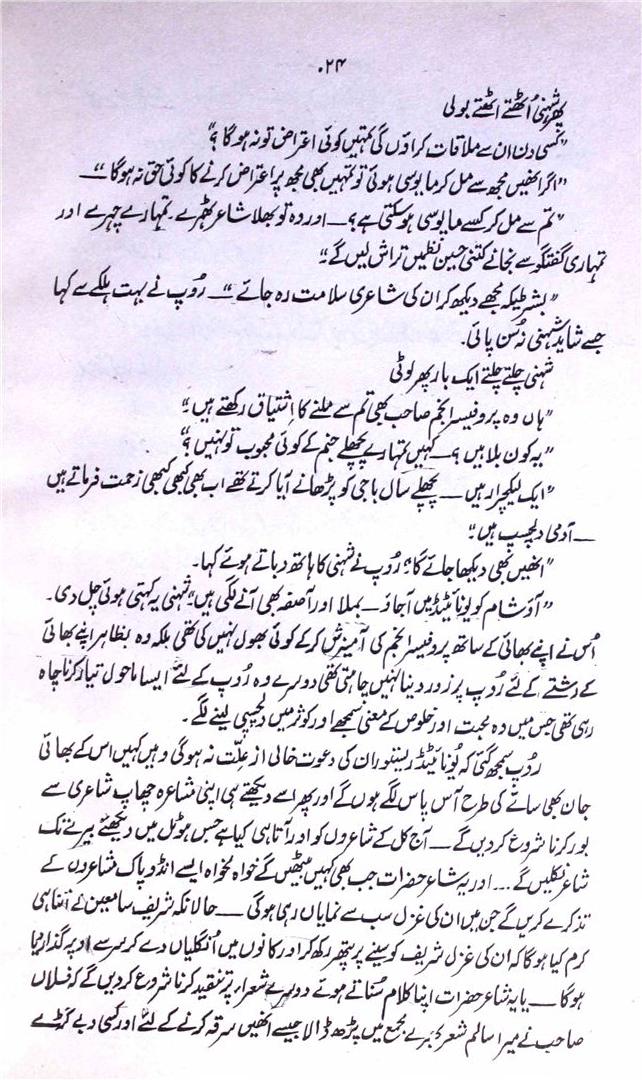 ۰۲۴
پھر شہنی اُٹھتے اٹھتے بولی
”کسی دن ان سے ملاقات کراؤں گی تمہیں کوئی اعتراض تو نہ ہوگا؟“
”اگر انھیں مجھ سے مل کر مایوسی ہوئی تو تمہیں بھی مجھ پر اعتراض کرنے کا کوئی حق نہ ہوگا“ —
”تم سے مل کر کسے مایوسی ہوسکتی ہے؟ — اور وہ تو بھلا شاعر ٹھہرے۔ تمہارے چہرے اور
تمہاری گفتگو سے نجانے کتنی حسین نظمیں تراش لیں گے۔“
”بشرطیکہ مجھے دیکھ کر ان کی شاعری سلامت رہ جائے“ — رُوپ نے بہت ہلکے سے کہا
جسے شاید شہنی نہ سُن پائی۔
شہنی چلتے چلتے ایک بار پھر لوٹی
”ہاں وہ پروفیسر انجم صاحب بھی تم سے ملنے کا اشتیاق رکھتے ہیں“
”یہ کون بلا ہیں؟ — کہیں تمہارے پچھلے جنم کے کوئی محبوب تو نہیں؟“
”ایک لیکچرار ہیں — پچھلے سال باجی کو پڑھانے آیا کرتے تھے اب بھی کبھی کبھی زحمت فرماتے ہیں
— آدمی دلچسپ ہیں۔“
”انھیں بھی دیکھا جائے گا“ رُوپ نے شہنی کا ہاتھ دباتے ہوئے کہا۔
”آؤ شام کو یونائیٹڈ میں آجاؤ — بملا اور آصفہ بھی آنے لگی ہیں“ شہنی یہ کہتی ہوئی چل دی۔
اُس نے اپنے بھائی کے ساتھ پروفیسر انجم کی آمیزش کرکے کوئی بھول نہیں کی تھی بلکہ وہ بظاہر اپنے بھائی
کے رشتے کے لئے رُوپ پر زور دینا نہیں چاہتی تھی دوسرے وہ رُوپ کے لئے ایسا ماحول تیار کرنا چاہ
رہی تھی جس میں وہ محبت اور خلوص کے معنی سمجھے اور کوثر میں دلچسپی لینے لگے۔
رُوپ سمجھ گئی کہ یونائیٹڈ ریستوران کی دعوت خالی از علّت نہ ہوگی وہیں کہیں اس کے بھائی
جان بھی سائے کی طرح آس پاس لگے ہوں گے اور پھر اسے دیکھتے ہی اپنی مشاعرہ چھاپ شاعری سے
بور کرنا شروع کردیں گے — آج کل کے شاعروں کو اور آتا ہی کیا ہے جس ہوٹل میں دیکھئے بیرے تک
شاعر نکلیں گے ... اور یہ شاعر حضرات جب بھی کہیں بیٹھیں گے خواہ مخواہ ایسے انڈوپاک مشاعروں کے
تذکرے کریں گے جن میں ان کی غزل سب سے نمایاں رہی ہوگی — حالانکہ شریف سامعین نے اتنا ہی
کرم کیا ہوگا کہ ان کی غزل شریف کو سینے پر پتھر رکھ کر اور کانوں میں اُنگلیاں دے کر سر سے اوپر گذار دیا
ہوگا — یا یہ شاعر حضرات اپنا کلام سُناتے ہوئے دوسرے شعراء پر تنقید کرنا شروع کردیں گے کہ فلاں
صاحب نے میرا سالم شعر بھرے مجمع میں پڑھ ڈالا جیسے انھیں سرقہ کرنے کے لئے اور کسی دبے کڑے